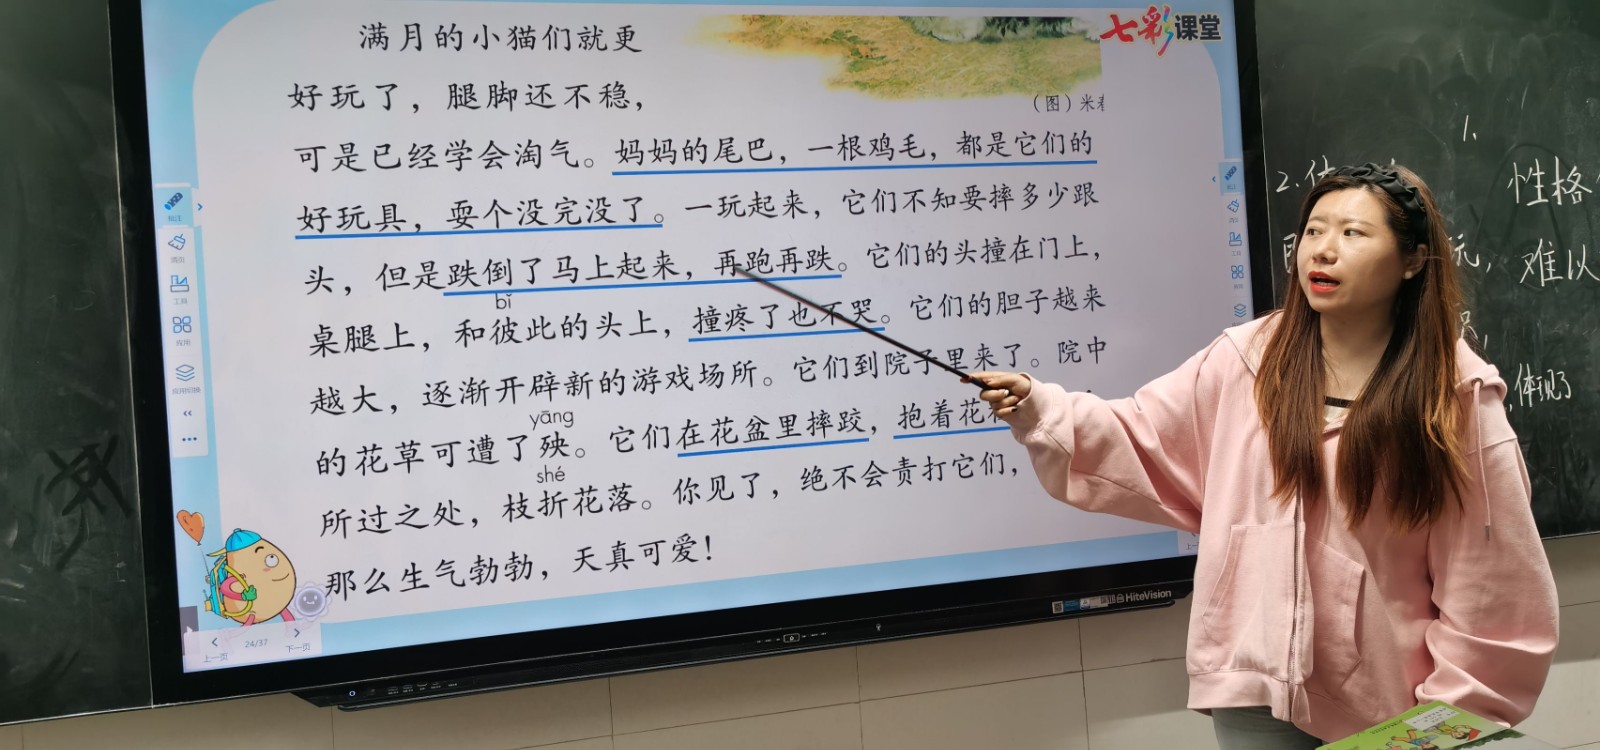 七彩课堂
满月的小猫们就更
好玩了，腿脚还不稳，
（图）米
可是已经学会淘气。妈妈的尾巴，一根鸡毛，都是它们的
好玩具，耍个没完没了。一玩起来，它们不知要摔多少跟
头，但是跌倒了马上起来，再跑再跌。它们的头撞在门上，
bǐ
桌腿上，和彼此的头上，撞疼了也不哭。它们的胆子越来
越大，逐渐开辟新的游戏场所。它们到院子里来了。院中
yāng
的花草可遭了殃。它们在花盆里摔跤，抱着花
shé
所过之处，枝折花落。你见了，绝不会责打它们，
那么生气勃勃，天真可爱！
批注
清页
工具
应用
上一页
24/37
下一页
HiteVision
1.
2.
性格
玩，难以
体现了